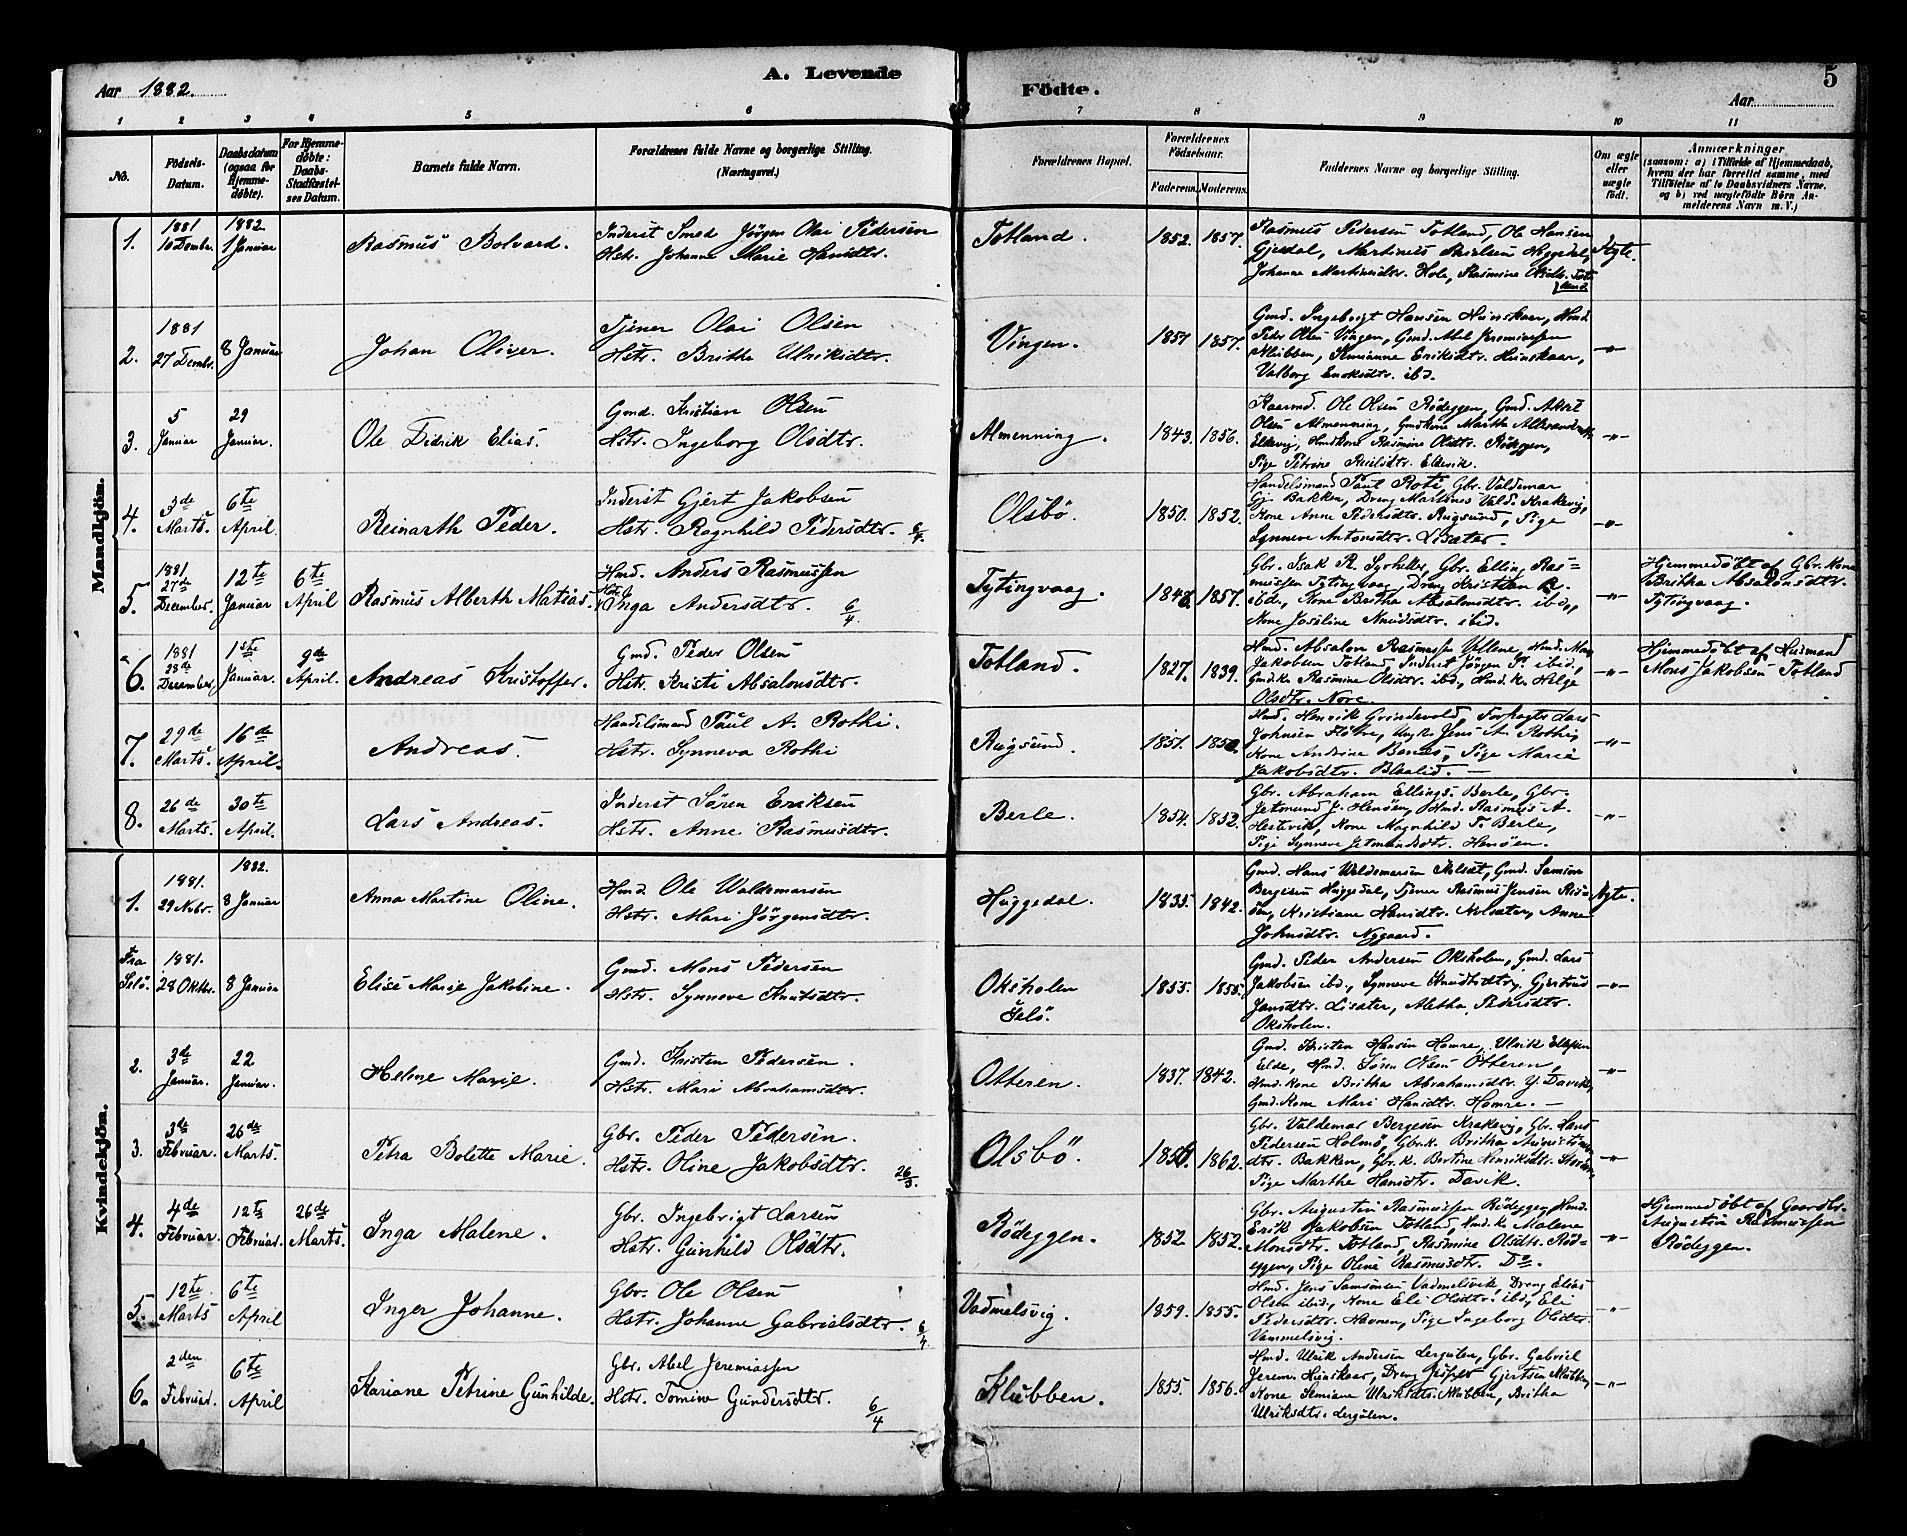 Aar 1882.
A. Levende
Födte.
5
Aar
1 2 3 4 5 6 7 8 9 10 11
No.
Födsels-Datum.
Daabsdatum (ogsaa for Hjemme-döbte).
For Hjemme-döbte: Daabs-Stadfæstel-ses Datum.
Barnets fulde Navn.
Forældrenes fulde Navne og borgerlige Stilling. (Næringsvei.)
Forældrenes Bopæl.
Forældrenes Födselsaar.
Faderens. Moderens.
Faddernes Navne og borgerlige Stilling.
Om ægte eller uægte födt.
Anmærkninger
(saasom: a) i Tilfælde af Hjemmedaab, hvem der har forrettet samme, med Tilföielse af to Daabsvidners Navne, og b) ved uægtefödte Börn Anmelderens Navn m. V.)
Mandkjön.
1. 1881 10 Decmbr. 1882. 1 Januar Rasmus Bolvard.
Inderst Smed Jörgen Olai Pedersen
Hstr. Johanne Marie Hansdtr.
Totland. 1852. 1857.
Rasmus Pedersen Totland, Ole Hansen
Gjesdal, Martinus Nielsen Huggedal,
Johanne Martinusdtr. Hole, Rasmine Olsdtr. Totland
Ægte.
2. 1881 27 Decmbr. 8 Januar Johan Oliver.
Tjener Olai Olsen
Hstr. Britte Ulriksdtr.
Vingen. 1857 1857.
Gmd. Ingebrigt Hansen Hunskaar, Hmd.
Peder Olsen Vingen, Gmd. Abel Jeremiassen
Klubben, Eriksdtr. Hunskaar,
Valborg Enoksdtr. ibd.
-"-
3. 5 Januar 29 Januar. Ole Fidrik Elias.
Gmd. Kristian Olsen
Hstr. Ingeborg Olsdtr.
Almenning. 1843. 1856.
Kaarmd. Ole Olsen Rödeggen, Gmd.
Olsen Almenning, Gmdkone Martha
Eldevig, Hmdkone Rasmine Olsdtr. Rödeggen,
Pige Petrine Eldevik.
-"-
4. 3de Marts. 6te April. Reinarth Peder.
Inderst Gjert Jakobsen
Hstr. Ragnhild Pedersdtr. 6/4.
Olsbö. 1850. 1852.
Handelsmand Paul Roti, Gbr. Valdemar
Gj. Bakken, Dreng Martines Vald. Krakevig,
Kone Anne Pedersdtr. Rugsund, Pige
Synneve Antonsdtr. Lisæter.
-"-
5. 1881 27de December. 12te Januar 6te April Rasmus Alberth Matias.
Hmd. Anders Rasmussen
Hstr. Inga Andersdtr. 6/4
Tytingvaag. 1847. 1857.
Gbr. Isak R. Gbr. Elling Ras-
mussen Tytingvaag, Dreng Kristian R.
ibd., Kone Britha Absalonsdtr. ibid.,
Kone Joseline Knudsdtr. ibid.
-"-
Hjemmedöbt af Gbr.kone
Britha Absalonsdtr.
Tytingvaag.
6. 1881 28de December 1ste Januar. 9de April. Andreas Kristoffer.
Gmd. Peder Olsen
Hstr. Kristi Absalonsdtr.
Totland. 1827. 1839.
Hmd. Absalon Rasmussen Vellene, Hmd. Mons
Jakobsen Totland, Inderst Jörgen P. ibid.,
Gmdk. Rasmine Olsdtr. ibd., Hmd.k. Helge
Olsdtr. Nore.
-"-
Hjemmedöbt af Husmand
Mons Jakobsen Totland
7. 29de Marts. 16de April. Andreas.
Handelsmand Paul A. Rothi.
Hstr. Synneva Rothi
Rugsund. 1851.
Hmd. Henrik Grindevold, Forpagter Lars
Johnsen Flötre, Ungk. Jens A. Rothi,
Kone Andrine Pige Maria
Jakobsdtr. Blaalid. —
-"-
8. 26de Marts. 30te April. Lars Andreas.
Inderst Sören Eriksen
Hstr. Anne Rasmusdtr.
Berle. 1854. 1852.
Gbr. Abraham Ellings. Berle, Gbr.
Jetmund J. Henöen, Hmd. Rasmus A.
Hestevik, Kone Magnhild T. Berle,
Pige Synneve Jetmundsdtr. Henöen.
-"-
Kvindekjön.
1. 1881. 29 Novbr. 1882. 8 Januar Anna Martine Oline.
Hmd. Ole Waldemarsen
Hstr. Mari Jörgensdtr.
Huggedal. 1835. 1842.
Gmd. Hans Waldemarsen Gmd. Samson
Bergesen Huggedal, Tjener Rasmus Jensen
Kristiane Hansdtr. Anne
Johnsdtr. Nygaard.
Ægte.
Fra Selö. 1881. 28 Oktbr. 8 Januar Elise Marie Jakobine.
Gmd. Mons Pedersen
Hstr. Synneve Knutsdtr.
Oksholen
Selö. 1855. 1855.
Gmd. Peder Andersen Oksholen, Gmd. Lars
Jakobsen ibd., Synneve Knudsdtr., Gjertrud
Jansdtr. Lisæter, Aletha Pedersdtr.
Oksholen.
-"-
2. 3de Januar. 22 Januar. Helene Marie.
Gmd. Kristen Pedersen.
Hstr. Mari Abrahamsdtr.
Otteren. 1837. 1842.
Gmd. Kristen Hansen Hamre, Ulrik
Eide, Hmd. Sören Olsen Otteren,
Hmd. Kone Britha Abrahamsdtr. Y. Davik,
Gmd. Kone Mari Hansdtr. Hamre. —
-"-
3. 3de Februar. 26de Marts. Petra Bolette Marie.
Gbr. Peder Pedersen.
Hstr. Oline Jakobsdtr. 26/3
Olsbö. 1862.
Gbr. Valdemar Bergesen Krakevig, Gbr. Hans
Pedersen Holmö, Gbr.k. Britha
dtr. Bakken, Gbr.k. Bertine Henriksdtr.
Pige Marthe Hansdtr. Davik.
-"-
4. 4de Februar. 12te Februar. 26de Marts. Inga Malene.
Gbr. Ingebrigt Larsen
Hstr. Gunhild Olsdtr.
Rödeggen. 1852. 1852.
Gbr. Augustin Rasmussen Rödeggen, Hmd.
Erik Jakobsen Totland, Hmd.k. Malene
Monsdtr. Totland, Rasmine Olsdtr. Röd-
eggen, Pige Oline Rasmusdtr. Do.
-"-
Hjemmedöbt af Gaardbr.
Augustin Rasmussen
Rödeggen.
5. 12te Marts 6te April Inger Johanne.
Gbr. Ole Olsen
Hstr. Johanne Gabrielsdtr. 6/4
Vadmelsvig. 1859. 1855.
Hmd. Jens Samsonsen Vadmelsvik, Dreng Elias
Olsen ibid., Kone Eli Olsdtr. ibd., Eli
Pedersdtr. Havnen, Pige Ingeborg Olsdtr.
Vammelsvig.
-"-
6. 2den Februar. 6te April Kariane Petrine Gunhilde.
Gbr. Abel Jeremiassen
Hstr. Tomine Gundersdtr. 6/4
Klubben. 1855. 1856.
Hmd. Ulrik Andersen Lergulen, Gbr. Gabriel
Jerem. Hunskaar, Dreng Jesper Gjertsen Klubben,
Kone Semine Ulriksdtr. Klubben, Britha
Ulriksdtr. Lergulen.
-"-